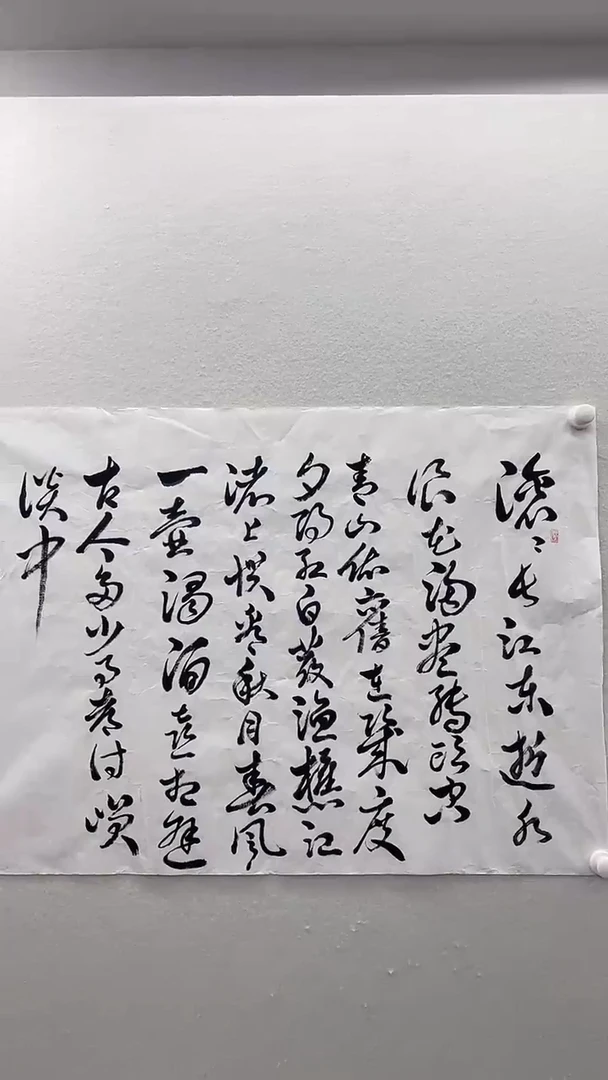 滚滚长江东逝水
浪花淘尽转头空
青山依舊在幾度
夕阳红白发渔樵江
渚上惯看秋月春风
一壶浊酒喜相逢
古今多少事都付笑
谈中